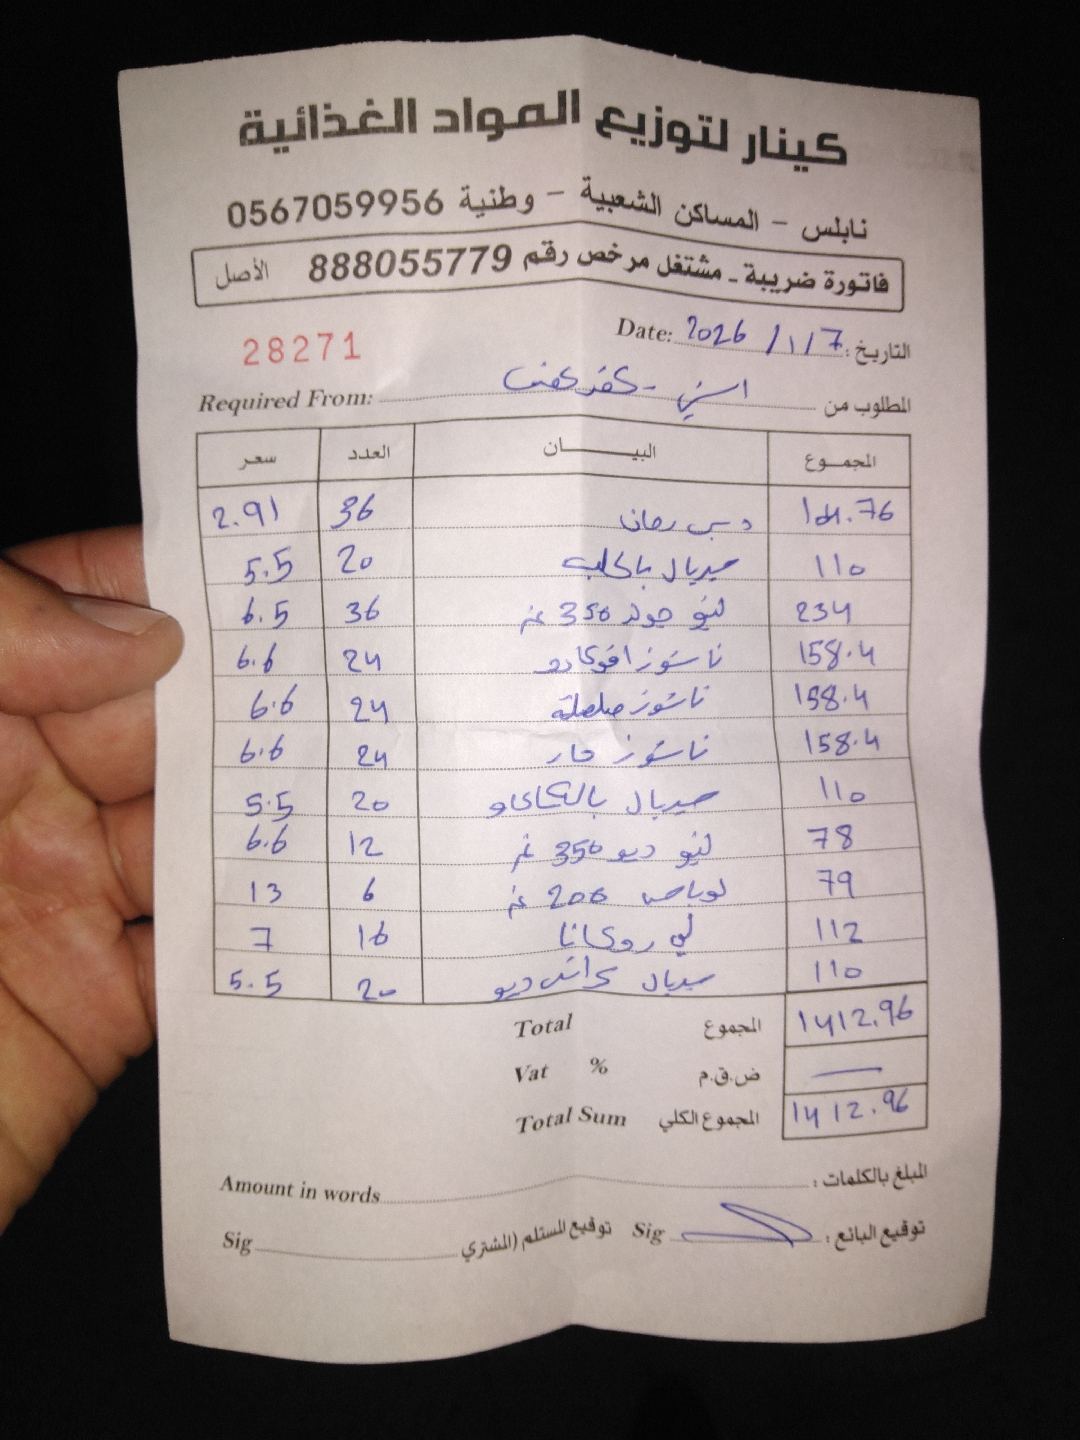 كينار لتوزيع المواد الغذائية
نابلس - المساكن الشعبية - وطنية 0567059956
فاتورة ضريبة - مشتغل مرخص رقم 888055779 الأصل
التاريخ: 7/1/2026 Date:
28271
المطلوب من Required From:
المجموع البيــــــان العدد سعر
دبس رمان 36 2.91
110 20 5.5
234 لينو جولد 350 غم 36 6.5
158.4 ناشوز افوكادو 24 6.6
158.4 ناشوز 24 6.6
158.4 ناشوز حار 24 6.6
110 بالكاكاو 20 5.5
78 لينو ديو 350 غم 12 6.6
79 200 غم 6 13
112 لي روكانا 16 7
110 ديو 20 5.5
Total المجموع 1412.96
Vat % ض.ق.م —
Total Sum المجموع الكلي 1412.96
المبلغ بالكلمات : Amount in words
توقيع البائع : Sig توقيع المستلم (المشتري Sig